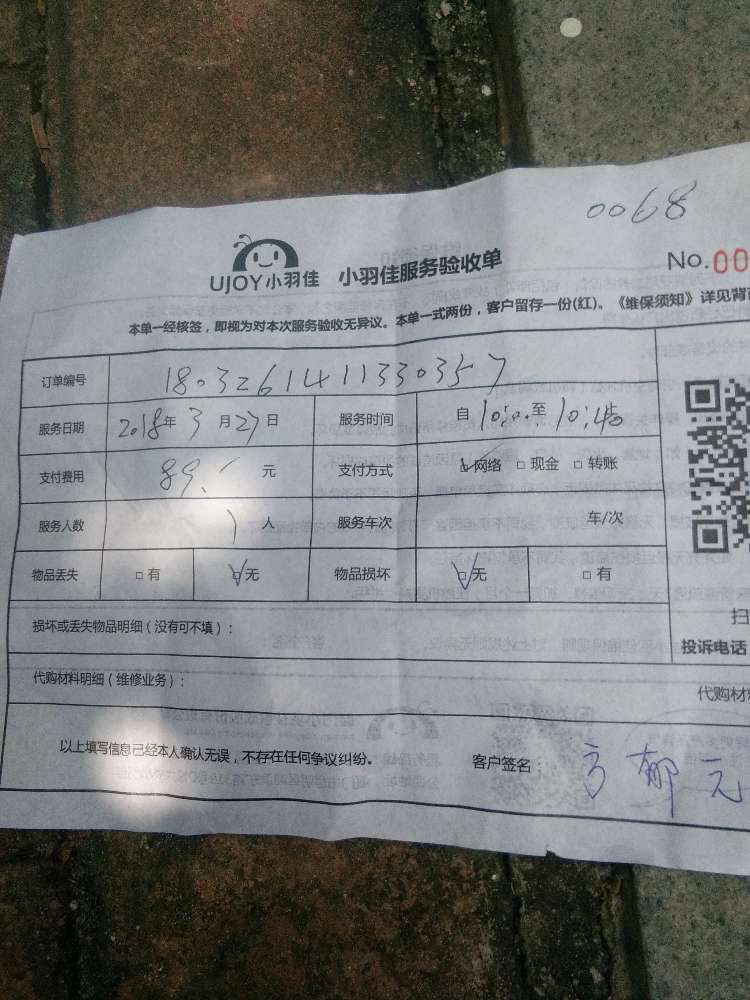 0068
UJOY小羽佳 小羽佳服务验收单 No.00
本单一经核签，即视为对本次服务验收无异议。本单一式两份，客户留存一份(红)。《维保须知》详见背
订单编号 1803261411330357
服务日期 2018年3月27日 服务时间 自10:00至10:45
支付费用 89. 元 支付方式 网络 现金 转账
服务人数 1人 服务车次 车/次
物品丢失 有 无 物品损坏 无 有
损坏或丢失物品明细（没有可不填）：
扫
投诉电话
代购材料明细（维修业务）：
代购材
以上填写信息已经本人确认无误，不存在任何争议纠纷。 客户签名： 郁元